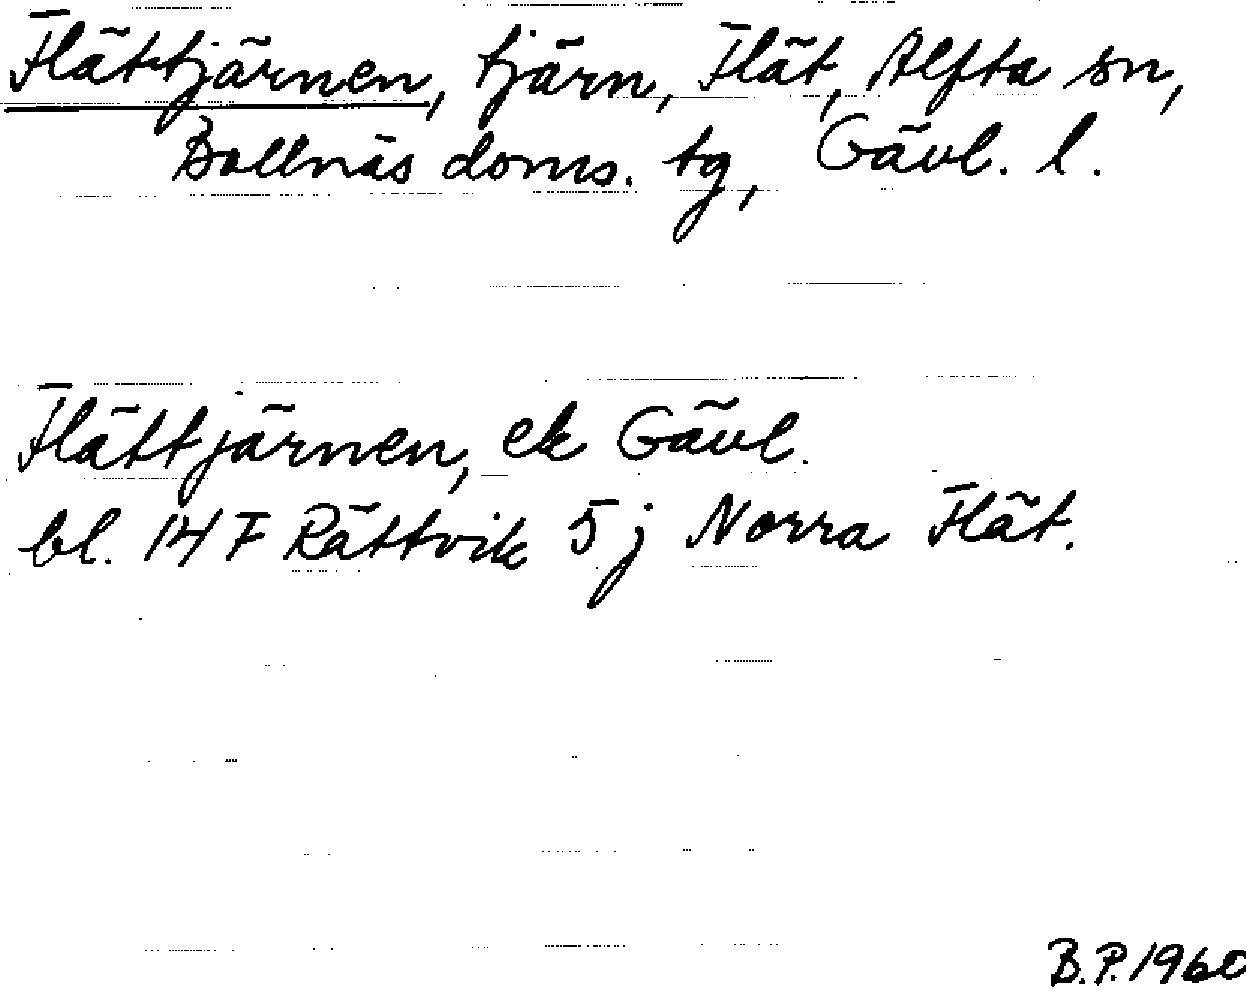 Flättjärnen, tjärn, Flät, Alfta sn,
Bollnäs doms. tg, Gävl. l.
Flättjärnen, ek Gävl.
bl. 14 F Rättvik 5 j Norra Flät.
B.P. 1960